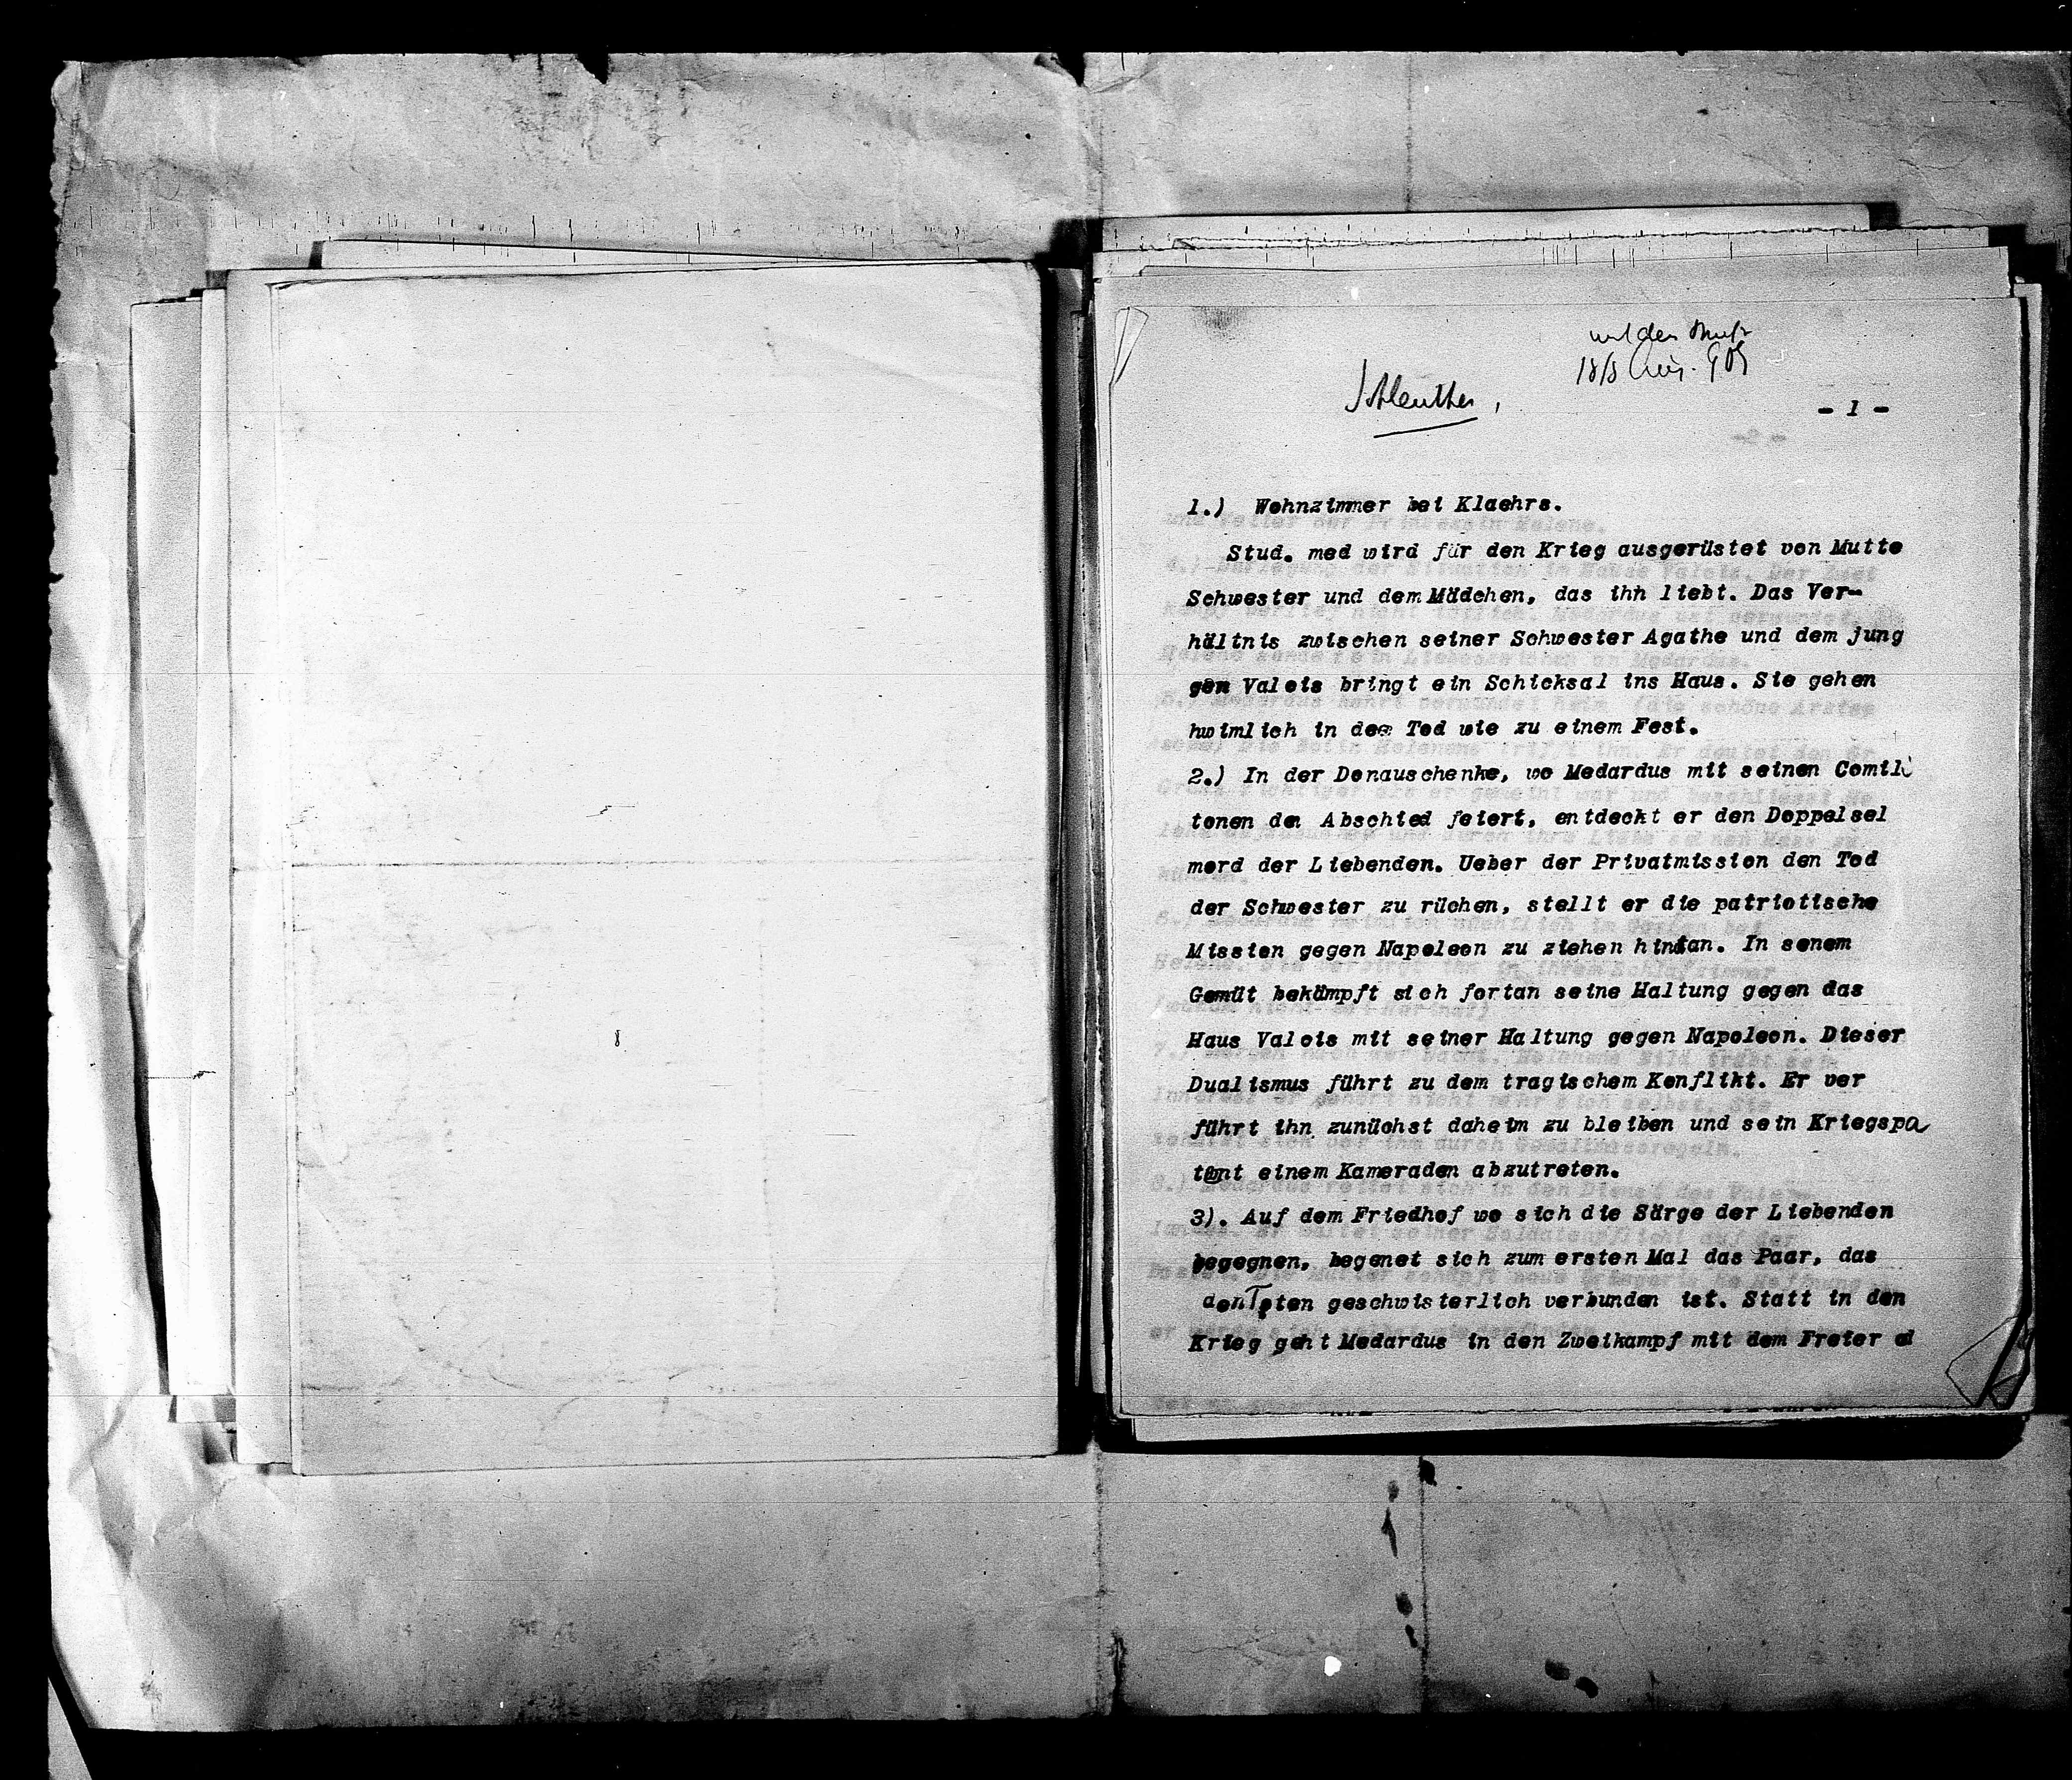 Schlenther,
- 1 -
1.) Wohnzimmer bei Klaehrs.
Stud. med wird für den Krieg ausgerüstet von Mutte
Schwester und dem Mädchen, das ihn liebt. Das Ver-
hältnis zwischen seiner Schwester Agathe und dem jung
gen Valois bringt ein Schicksal ins Haus. Sie gehen
hwimlich in den Tod wie zu einem Fest.
2.) In der Donauschenke, wo Medardus mit seinen Comili
tonen den Abschied feiert, entdeckt er den Doppelsel
mord der Liebenden. Ueber der Privatmission den Tod
der Schwester zu rächen, stellt er die patriotische
Mission gegen Napoleon zu ziehen hintan. In senem
Gemüt bekämpft sich fortan seine Haltung gegen das
Haus Valois mit seiner Haltung gegen Napoleon. Dieser
Dualismus führt zu dem tragischem Konflikt. Er ver
führt ihn zunächst daheim zu bleiben und sein Kriegspa
tent einem Kameraden abzutreten.
3). Auf dem Friedhof wo sich die Särge der Liebenden
begegnen, begenet sich zum ersten Mal das Paar, das
den Toten geschwisterlich verbunden ist. Statt in den
Krieg geht Medardus in den Zweikampf mit dem Freier